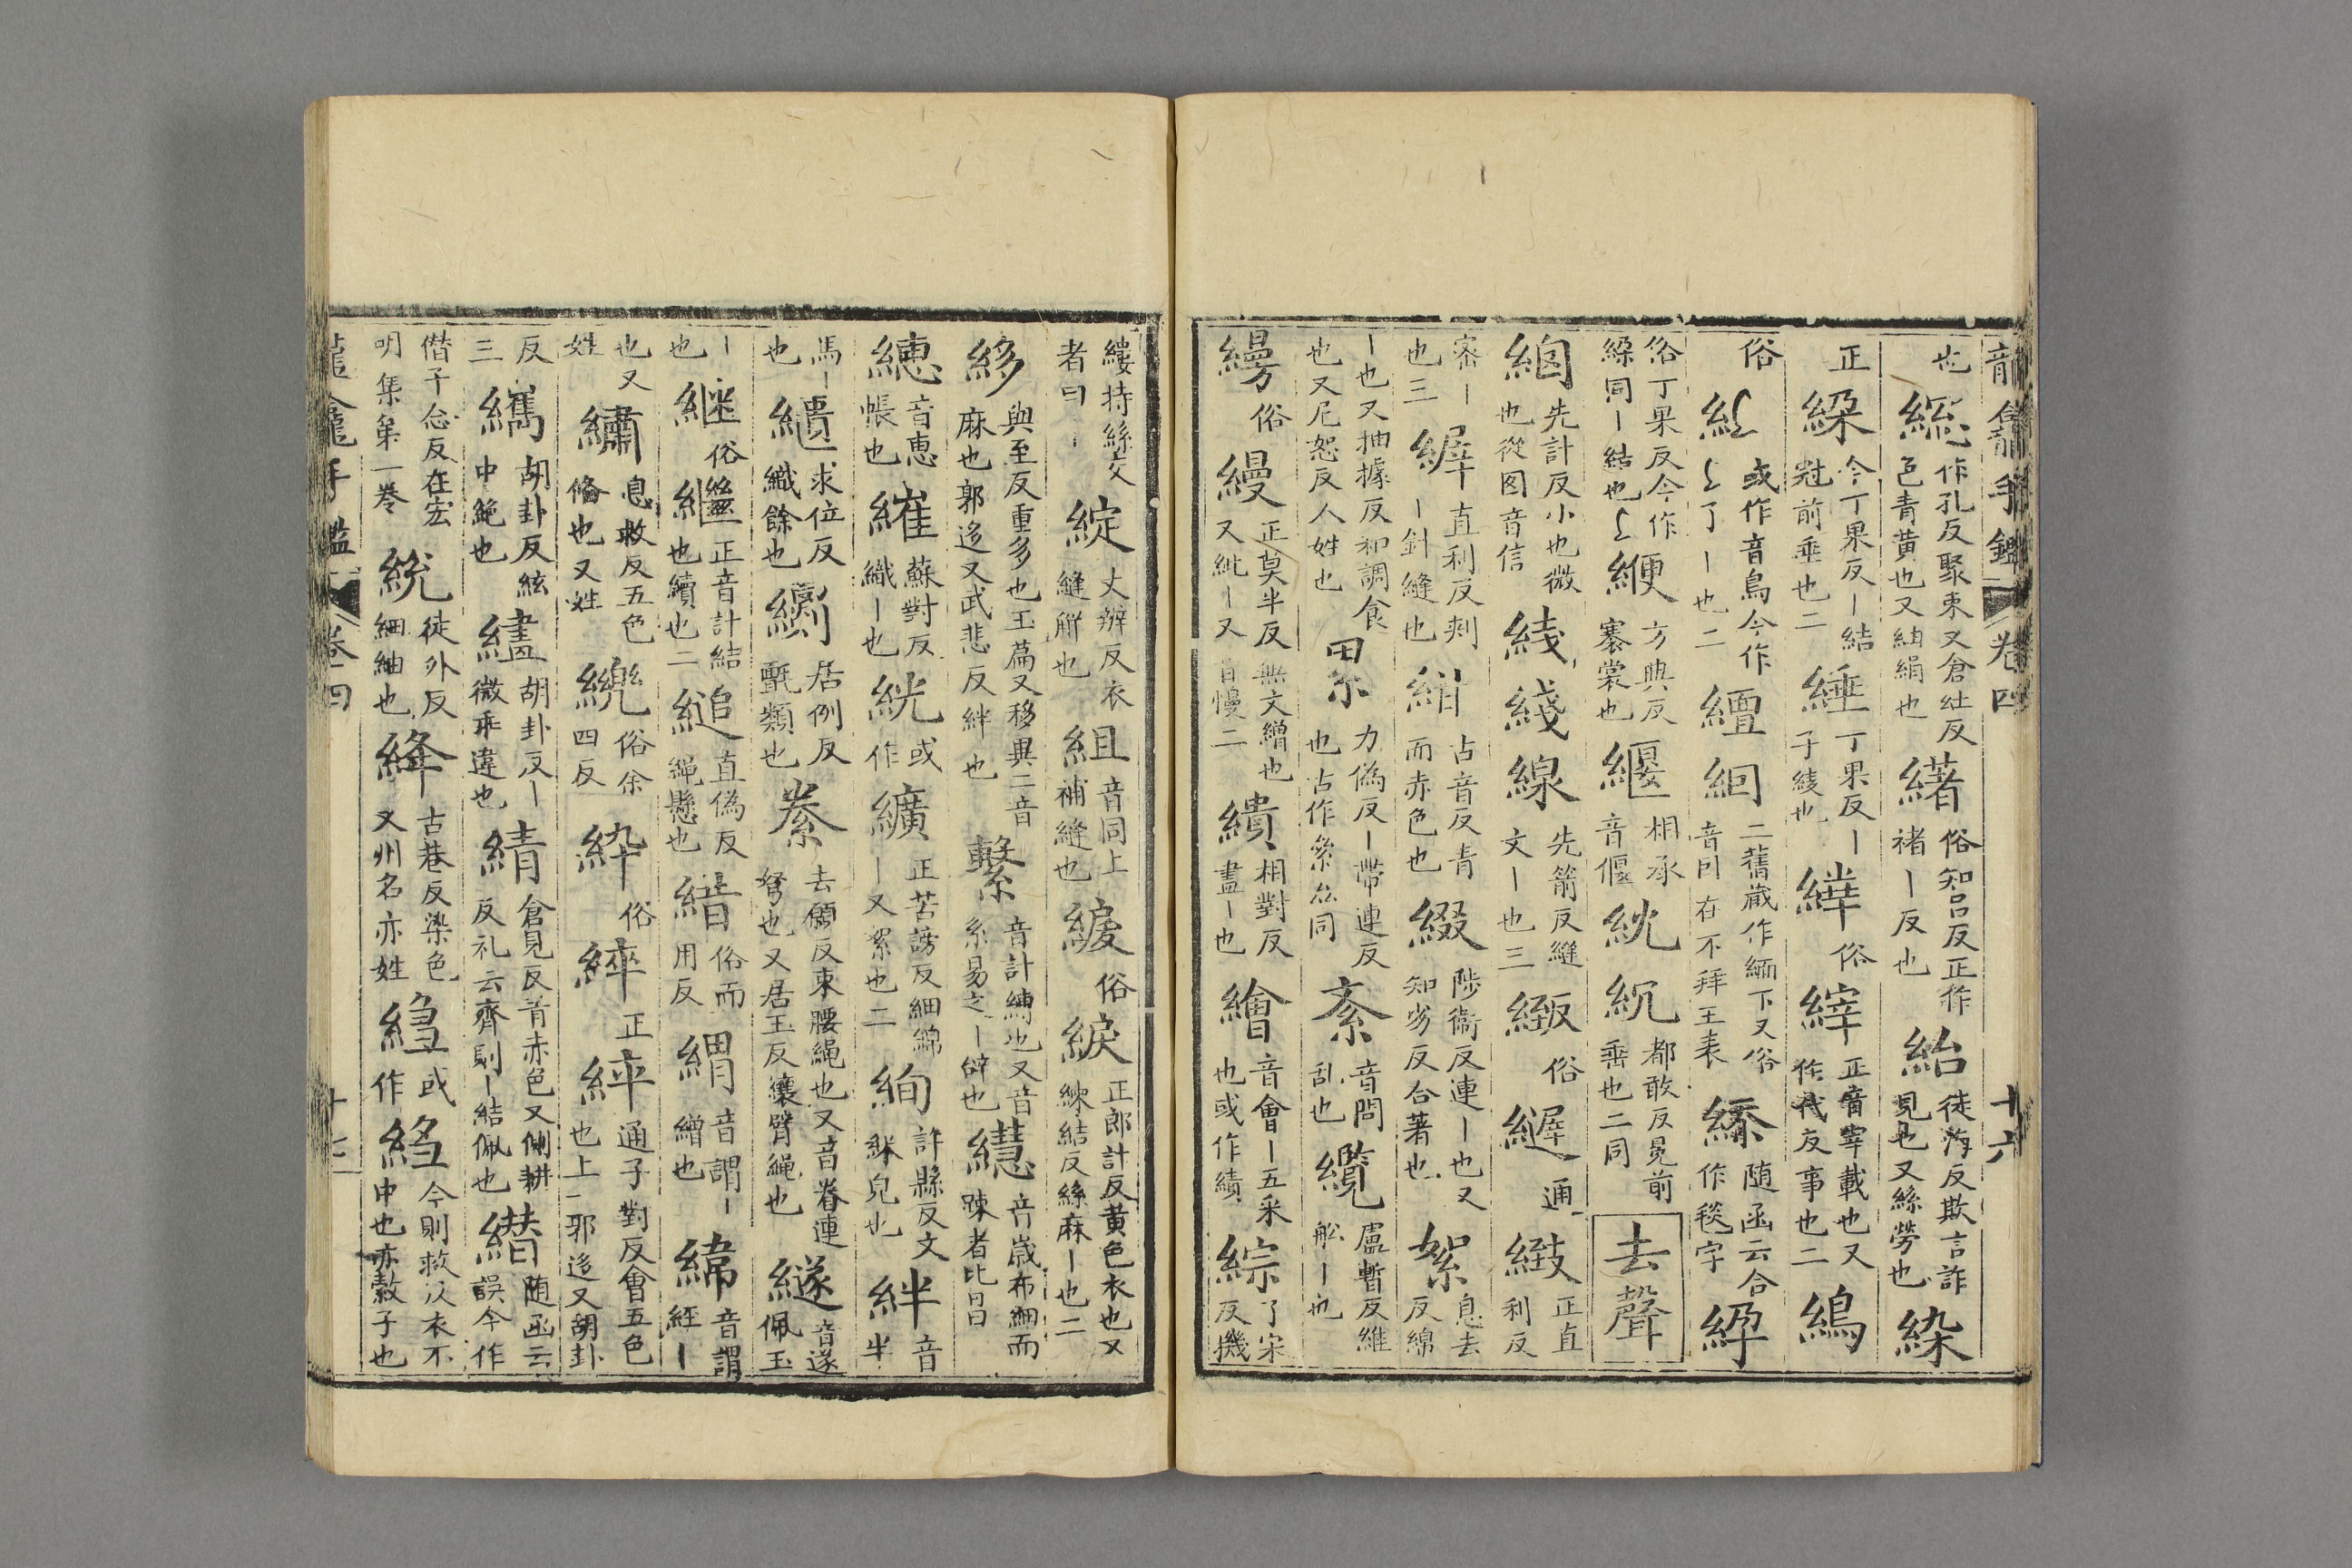 龍龕手鑑 卷四 十六
也 總 作孔反聚束又倉紅反色青黃也又紬絹也 緒 俗知呂反正作褚丨反也 紿 徒海反欺言詐見也又絲勞也 染
正 綵 今丁果反丨結冠前垂也二 綞 丁果反丨子綾也 縡 俗 縡 正音宰載也又作代反事也二 䋚
俗 或作音鳥今作了丨也二 䌼 絗 二舊藏作緬下又俗音囙在不拜王表 䋿 隨函云合作毯字
俗丁果反今作綵同丨結也 緶 方典反褰裳也 相承音偃 紞 都敢反冕前垂也二同 去聲
䋶 先計反小也微也從囟音信 綫 線 先箭反縫文丨也三 俗 通 緻 正直利反
密丨也三 縪 直利反刺丨針縫也 紺 古音反青而赤色也 綴 陟衞反連丨也又知劣反合著也 絮 息去反綿
丨也又抽據反和調食也又尼恕反人姓也 累 力僞反丨帶連反也古作絫仝同 紊 音問乱也 纜 盧暫反維舩丨也
俗 縵 正莫半反無文繒也又紕丨又音慢二 繢 相對反畫丨也 繪 音會丨五采也或作繢 綜 了宋反機
縷持絲交者曰丨 綻 丈辦反衣縫解也 組 音同上補縫也 俗 綟 正郎計反黃色衣也又練結反絲麻丨也二
𦀗 與至反重多也玉篇又移異二音麻也郭迻又武悲反絆也 繫 音計縛也又音系易之丨辭也 音歲布細而踈者比昌
繐 音惠帳也 䌨 蘇對反織丨也 絖 或作 纊 正苦謗反細綿丨又絮也二 絢 許縣反文綵皃也 絆 音半
馬丨也 繢 求位反織餘也 罽 居例反氈類也 絭 去願反束腰繩也又音眷連弩也又居玉反纕臂繩也 繸 音遂佩玉
丨也 継 俗 繼 正音計結也續也二 縋 直僞反繩懸也 緝 俗而用反 緭 音謂丨繒也 緯 音謂經丨
也又姓 繡 息救反五色俻也又姓 俗余四反 紣 俗 綷 正 通子對反會五色也上一郭迻又胡卦
反三 纗 胡卦反絃中絕也 繣 胡卦反丨徽乖違也 綪 倉見反青赤色又側耕反礼云齊則丨結佩也 隨函云誤今作
僭子念反在宏明集第一卷 綐 徒外反細紬也 絳 古巷反染色又州名亦姓 或作 今則救反衣不申也亦縠子也
龍龕手鑑 卷四